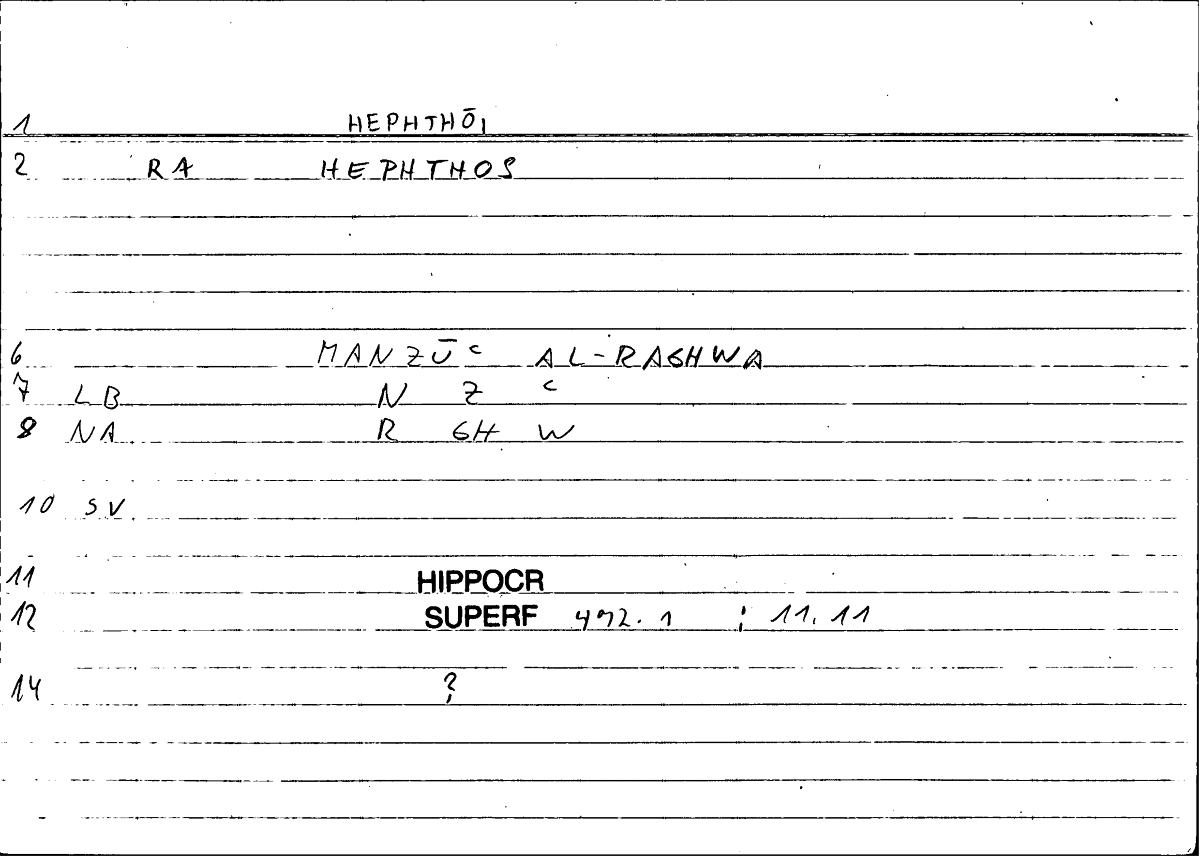 1 HEPHTHŌI
2 RA HEPHTHOS
6 MANZŪʿ AL-RAGHWA
7 LB N Z ʿ
8 NA R GH W
10 SV
11 HIPPOCR
12 SUPERF 492.1 ; 11.11
14 ?